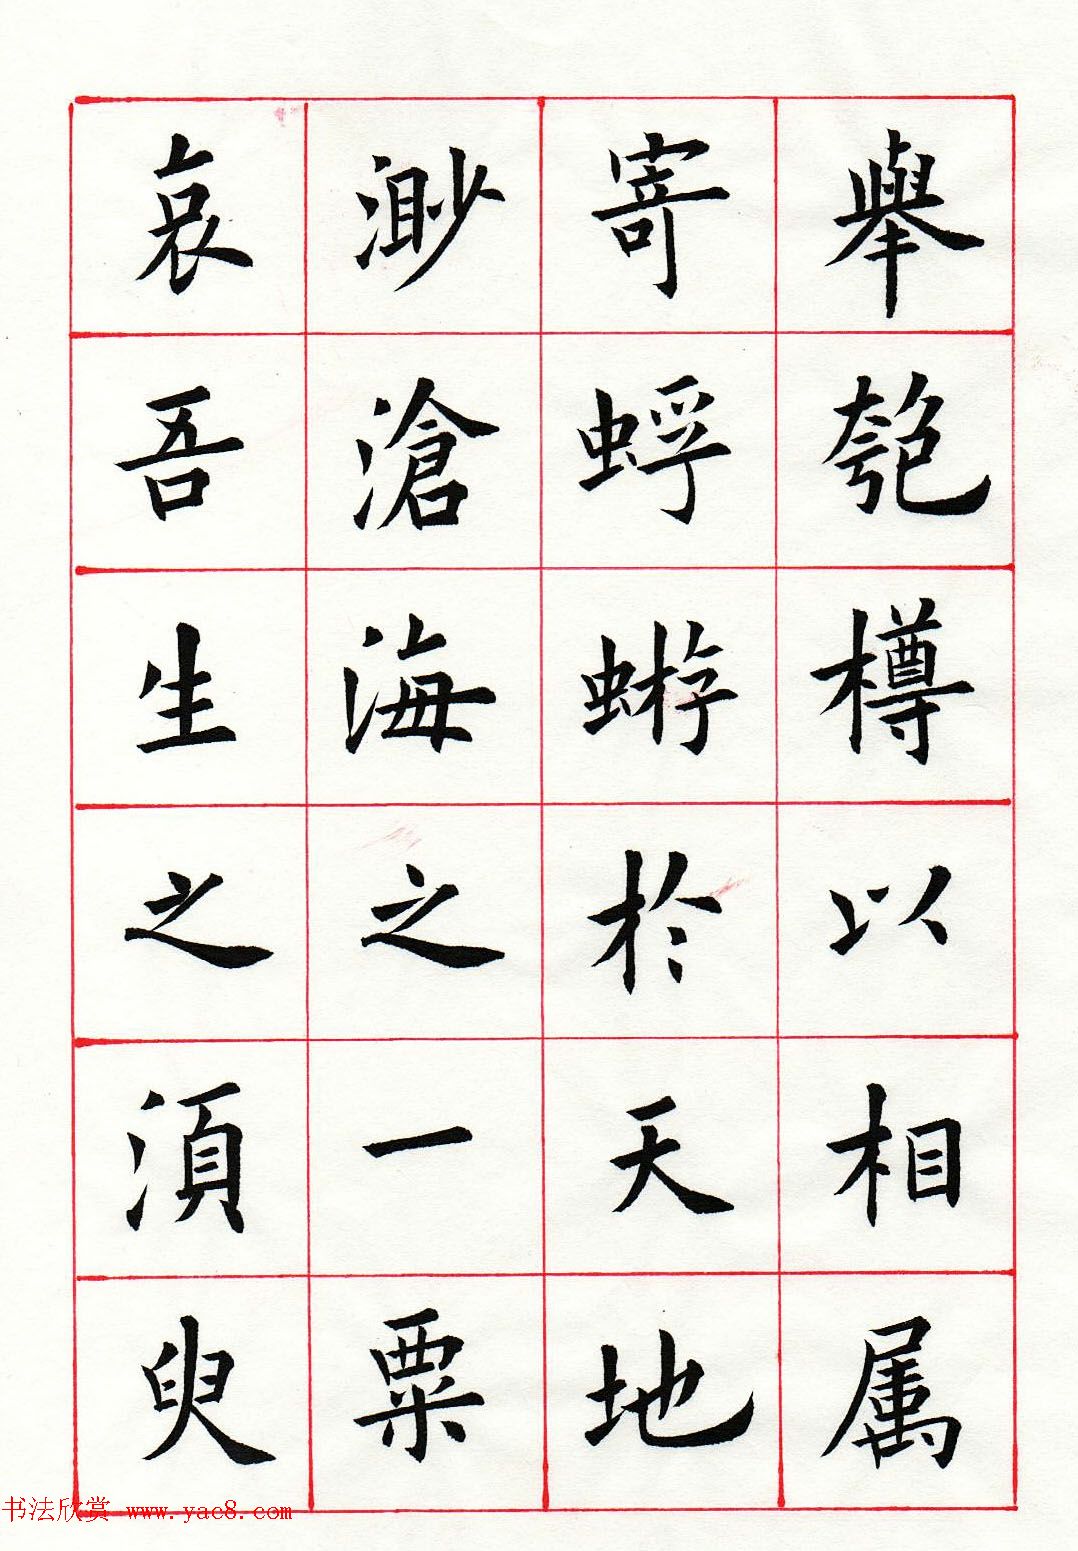 舉匏樽以相属
寄蜉蝣於天地
渺滄海之一粟
哀吾生之須臾
书法欣赏 www.yac8.com